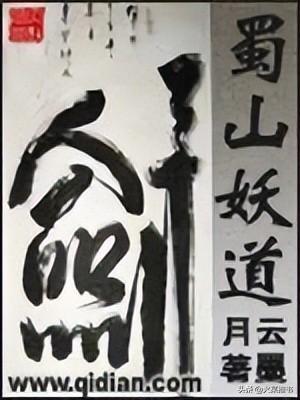 劍
蜀山妖道
云墨
月著
www.qidian.com